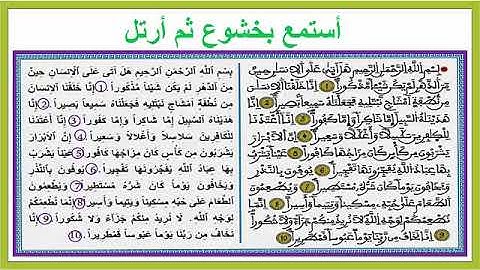 أستمع بخشوع ثم أرتل
بِسْمِ اللَّهِ الرَّحْمَنِ الرَّحِيمِ هَلْ أَتَى عَلَى الْإِنسَانِ حِينٌ
مِّنَ الدَّهْرِ لَمْ يَكُن شَيْئاً مَّذْكُوراً 1 إِنَّا خَلَقْنَا الْإِنسَانَ
مِن نُّطْفَةٍ أَمْشَاجٍ نَّبْتَلِيهِ فَجَعَلْنَاهُ سَمِيعاً بَصِيراً 2 إِنَّا
هَدَيْنَاهُ السَّبِيلَ إِمَّا شَاكِراً وَإِمَّا كَفُوراً 3 إِنَّا أَعْتَدْنَا
لِلْكَافِرِينَ سَلَاسِلاً وَأَغْلَالاً وَسَعِيراً 4 إِنَّ الْأَبْرَارَ
يَشْرَبُونَ مِن كَأْسٍ كَانَ مِزَاجُهَا كَافُوراً 5 عَيْناً يَشْرَبُ
بِهَا عِبَادُ اللَّهِ يُفَجِّرُونَهَا تَفْجِيراً 6 يُوفُونَ بِالنَّذْرِ
وَيَخَافُونَ يَوْماً كَانَ شَرُّهُ مُسْتَطِيراً 7 وَيُطْعِمُونَ
الطَّعَامَ عَلَى حُبِّهِ مِسْكِيناً وَيَتِيماً وَأَسِيراً 8 إِنَّمَا
نُطْعِمُكُمْ لِوَجْهِ اللَّهِ لَا نُرِيدُ مِنكُمْ جَزَاءً وَلَا شُكُوراً
9 إِنَّا نَخَافُ مِن رَّبِّنَا يَوْماً عَبُوساً قَمْطَرِيراً 10
بِسْمِ اللَّهِ الرَّحْمَنِ الرَّحِيمِ هَلْ أَتَى عَلَى الْإِنسَانِ حِينٌ
مِّنَ الدَّهْرِ لَمْ يَكُن شَيْئاً مَّذْكُوراً 1 إِنَّا خَلَقْنَا الْإِنسَانَ
مِن نُّطْفَةٍ أَمْشَاجٍ نَّبْتَلِيهِ فَجَعَلْنَاهُ سَمِيعاً بَصِيراً 2 إِنَّا
هَدَيْنَاهُ السَّبِيلَ إِمَّا شَاكِراً وَإِمَّا كَفُوراً 3 إِنَّا أَعْتَدْنَا
لِلْكَافِرِينَ سَلَاسِلاً وَأَغْلَالاً وَسَعِيراً 4 إِنَّ الْأَبْرَارَ
يَشْرَبُونَ مِن كَأْسٍ كَانَ مِزَاجُهَا كَافُوراً 5 عَيْناً يَشْرَبُ
بِهَا عِبَادُ اللَّهِ يُفَجِّرُونَهَا تَفْجِيراً 6 يُوفُونَ بِالنَّذْرِ
وَيَخَافُونَ يَوْماً كَانَ شَرُّهُ مُسْتَطِيراً 7 وَيُطْعِمُونَ
الطَّعَامَ عَلَى حُبِّهِ مِسْكِيناً وَيَتِيماً وَأَسِيراً 8 إِنَّمَا نُطْعِمُكُمْ
لِوَجْهِ اللَّهِ لَا نُرِيدُ مِنكُمْ جَزَاءً وَلَا شُكُوراً 9 إِنَّا
نَخَافُ مِن رَّبِّنَا يَوْماً عَبُوساً قَمْطَرِيراً